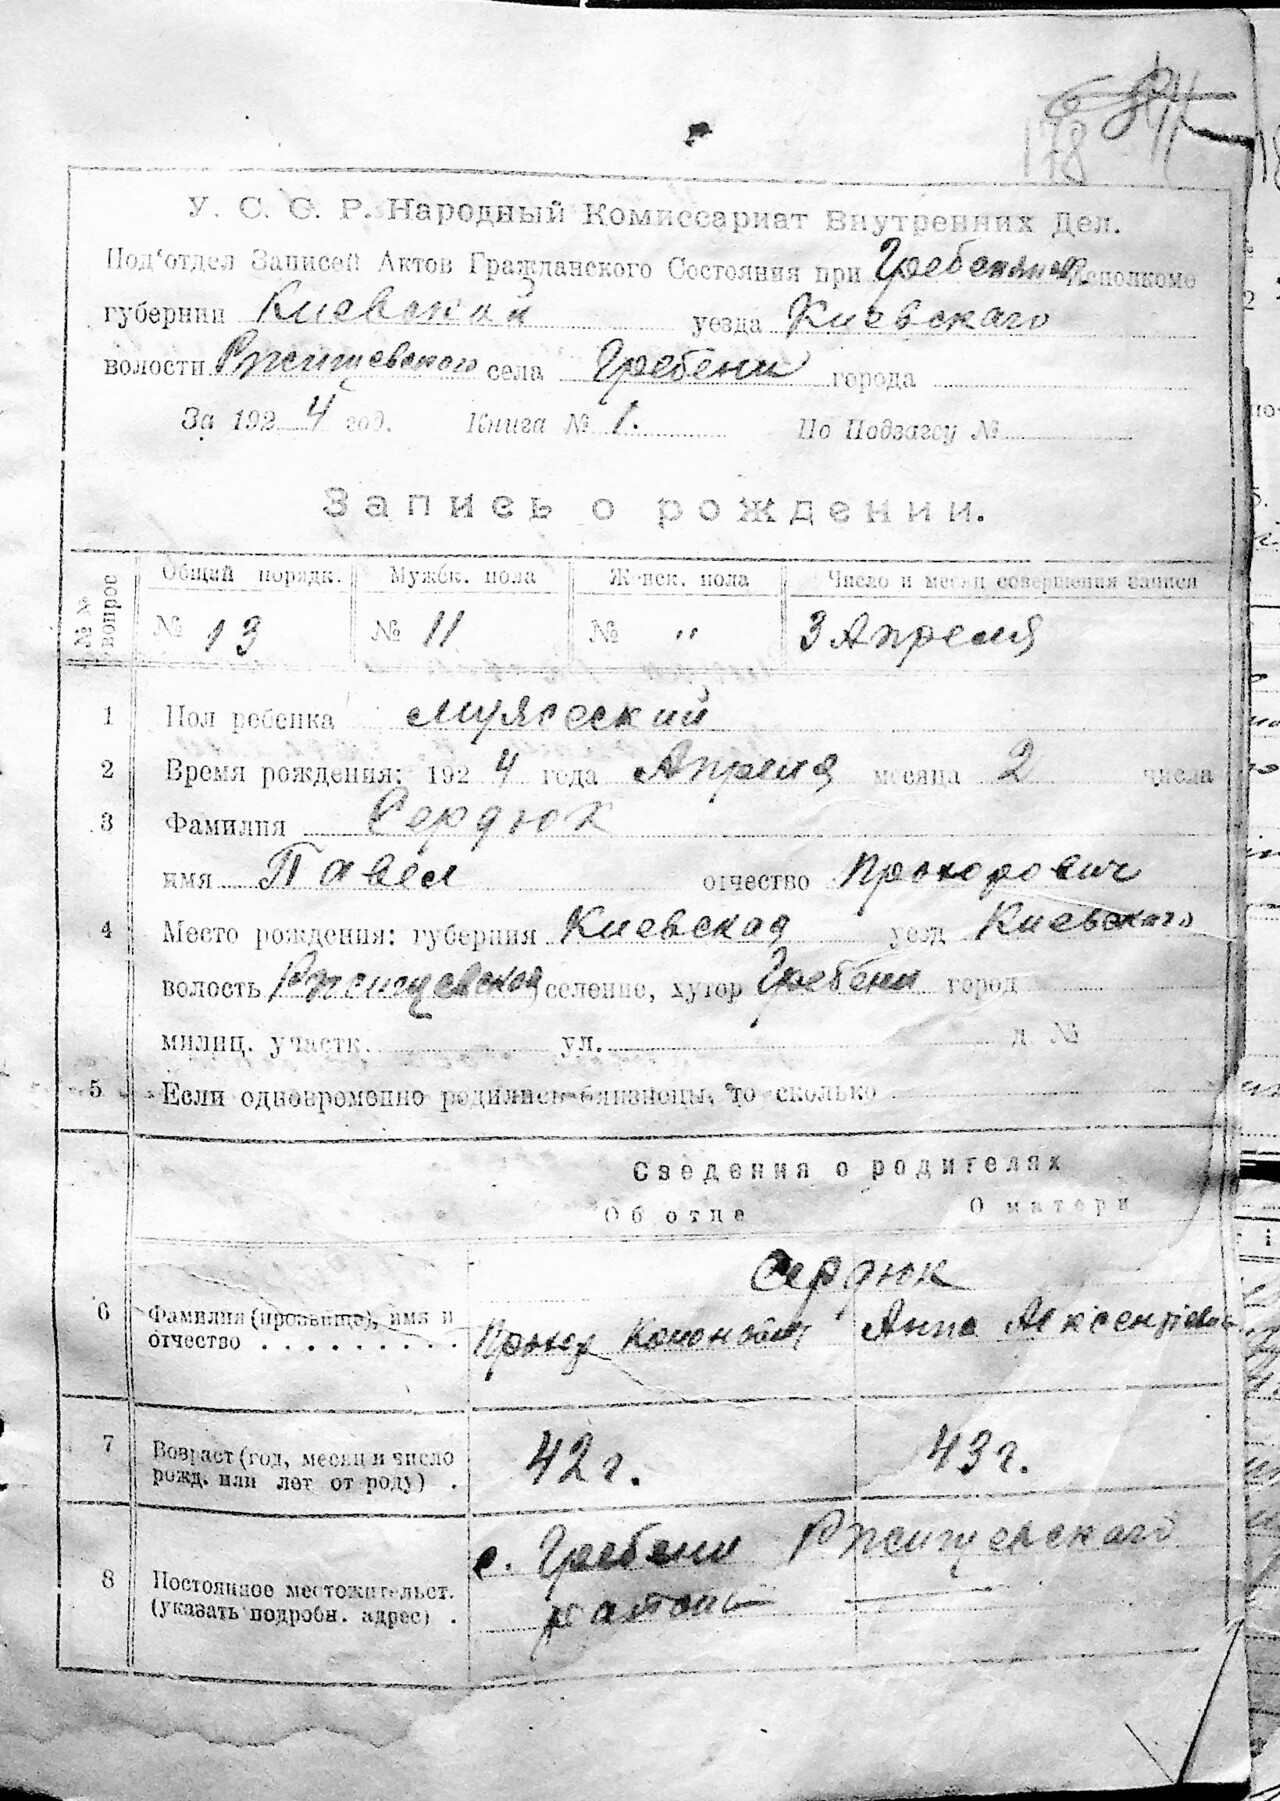 178
У. С. С. Р. Народный Комиссариат Внутренних Дел.
Под'отдел Записей Актов Гражданского Состояния при Гребенском Исполкоме
губернии Киевской уезда Киевскаго
волости Ржищевского села Гребени города
За 1924 год. Книга № 1. По Подзагсу №
Запись о рождении.
№№ вопрос
Общий порядк. Мужск. пола Женск. пола Число и месяц совершения записи
№ 13 № 11 № " 3 Апреля
1 Пол ребенка мужеский
2 Время рождения: 1924 года Апреля месяца 2 числа
3 Фамилия Сердюк
имя Павел отчество Прохорович
4 Место рождения: губерния Киевская уезд Киевскаго
волость Ржищевской селение, хутор Гребени город
милиц. участк. ул. д №
5 Если одновременно родились близнецы, то сколько
Сведения о родителях
Об отце О матери
Сердюк
6 Фамилия (прозвище), имя и
отчество . . . . . . . . . Прохор Кононович Анна Авксентіевна
7 Возраст (год, месяц и число
рожд. или лет от роду) . 42 г. 43 г.
с. Гребени Ржищевскаго
8 Постоянное местожительст.
(указать подробн. адрес) .